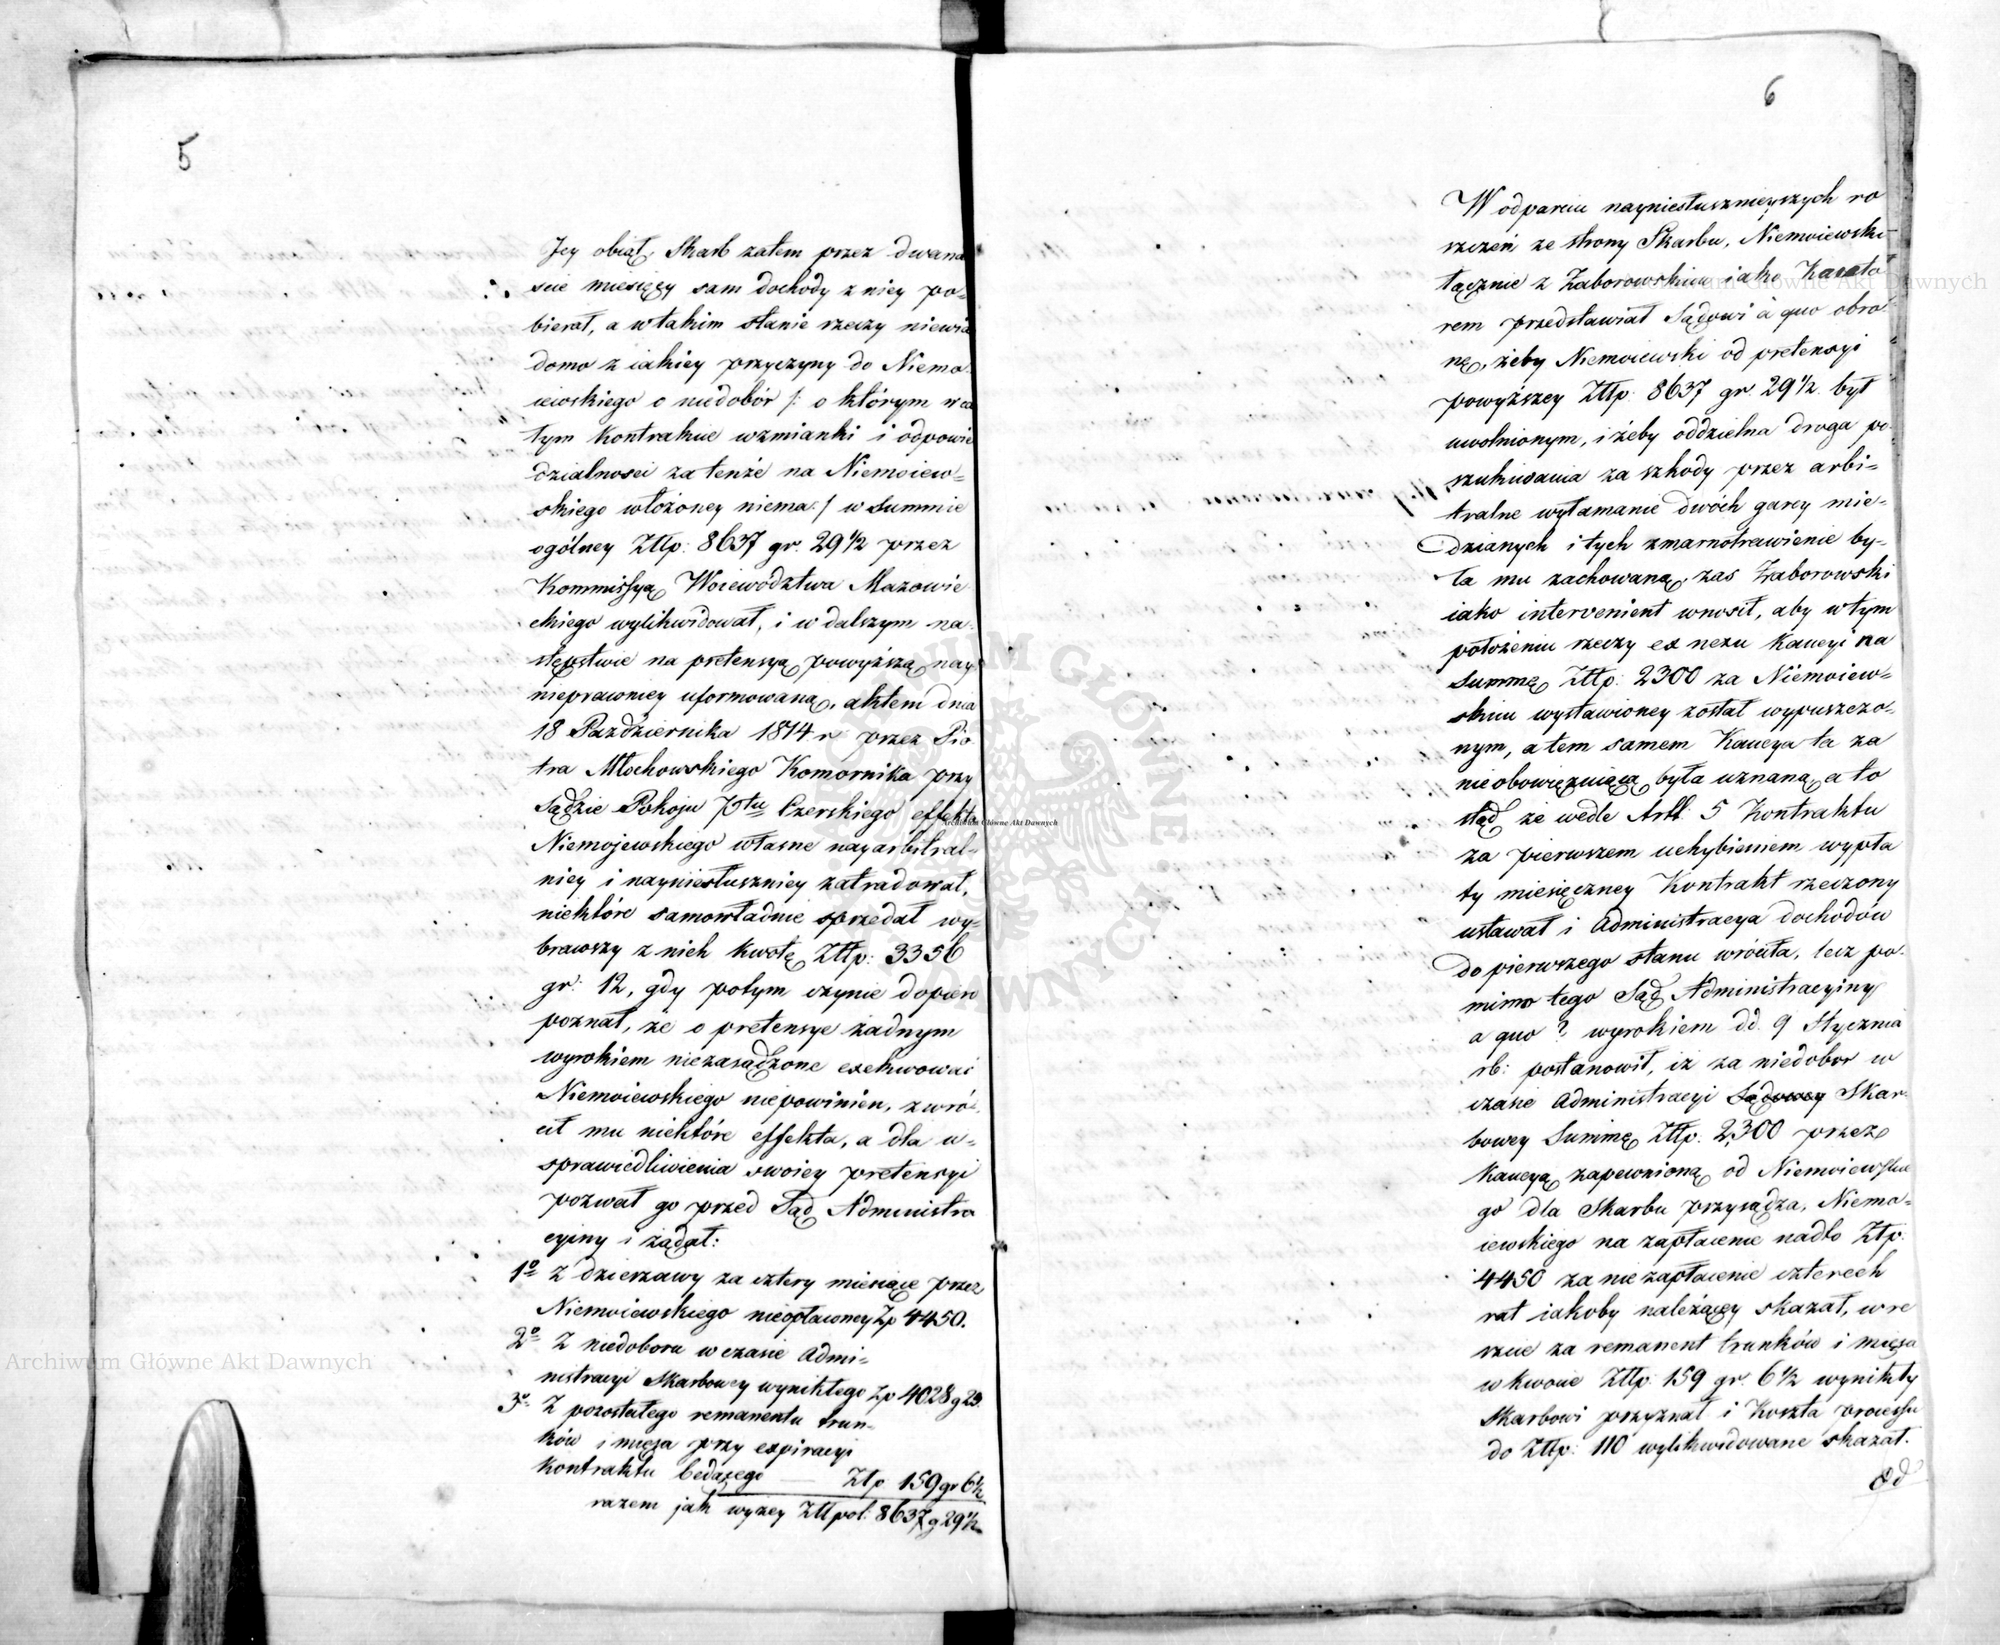 5
Jey obiął, Skarb zatem przez dwana
ście miesięcy sam dochody z niey po=
bierał, a w takim stanie rzeczy niewia
domo z iakiey przyczyny do Niemo
iewskiego o niedobór /: o którym w ca
łym Kontrakcie wzmianki i odpowie
dzialności za tenże na Niemoiew=
skiego włożoney niema :/ w Summie
ogólney Złtp: 8637 gr. 29 1/2 przez
Kommissyą Woiewództwa Mazowie
ckiego wylikwidował, i w dalszym na=
stępstwie na pretensyą powyższą nay
nieprawniey uformowaną, aktem dnia
18 Października 1814 r przez Pio
tra Młochowskiego Komornika przy
Sądzie Pokoju Ptu Czerskiego effekta
Niemojewskiego własne nayarbitral=
niey i nayniesłuszniey zatradował,
niektóre samowładnie sprzedał wy=
brawszy z nich kwotę Złtp: 3356
gr: 12, gdy potym czynie dopiero
poznał, że o pretensye żadnym
wyrokiem niezasądzone exekwować
Niemoiewskiego niepowinien, zwró=
cił mu niektóre effekta, a dla u=
sprawiedliwienia swoiey pretensyi
pozwał go przed Sąd Administra
cyiny i żądał:
1o Z dzierzawy za cztery miesiące przez
Niemoiewskiego nieopłaconey Zp 4450.
2o Z niedoboru w czasie Admi=
nistracyi Skarbowey wynikłego Zp 4028 g 23
3o Z pozostałego remanentu trun=
ków i mięsa przy expiracyi
Kontraktu będącego — Złp 159 gr 6 1/2
razem jak wyzey Złtpol: 8637 g 29 1/2
6
W odparciu nayniesłusznieyszych ro
szczeń ze strony Skarbu, Niemoiewski
łącznie z Zaborowskim iako Kawto
rem przedstawiał Sądowi à quo obro
nę, żeby Niemoiewski od pretensyi
powyższey Złtp: 8637 gr. 29 1/2 był
uwolnionym, i żeby oddzielna droga po=
szukiwania za szkody przez arbi=
tralne wyłamanie dwóch garcy mie=
dzianych i tych zmarnotrawienie by=
ła mu zachowaną, zas Zaborowski
iako intervenient wnosił, aby w tym
położeniu rzeczy ex nexu Kaucyi na
Summę Złtp: 2300 za Niemoiew=
skim wystawioney został wypuszczo=
nym, a tem samem Kaucya ta za
nieobowięzuiącą była uznaną, a to
stąd że wedle Artł: 5 Kontraktu
za pierwszem uchybieniem wypła
ty miesięczney Kontrakt rzeczony
ustawał i Administracya dochodów
do pierwszego stanu wróciła, lecz po=
mimo tego Sąd Administracyiny
a quo ? wyrokiem dd. 9 Stycznia
rb: postanowił, iż za niedobor w
czasie Administracyi Sądowey Skar=
bowey Summę Złtp. 2,300 przez
Kaucyą zapewnioną od Niemoiewskie
go dla Skarbu przysądza, Niemo=
iewskiego na zapłacenie nadto Złp:
4450 za nie zapłacenie czterech
rat iakoby należący skazał, wre
szcie za remanent trunków i mięsa
w kwocie Złtp 159 gr. 6 1/2 wynikły
Skarbowi przyznał i Koszta processu
do Złtp: 110 wylikwidowane skazał.
Od
Archiwum Główne Akt Dawnych
Archiwum Główne Akt Dawnych
Archiwum Główne Akt Dawnych
ARCHIWUM GŁÓWNE AKT DAWNYCH